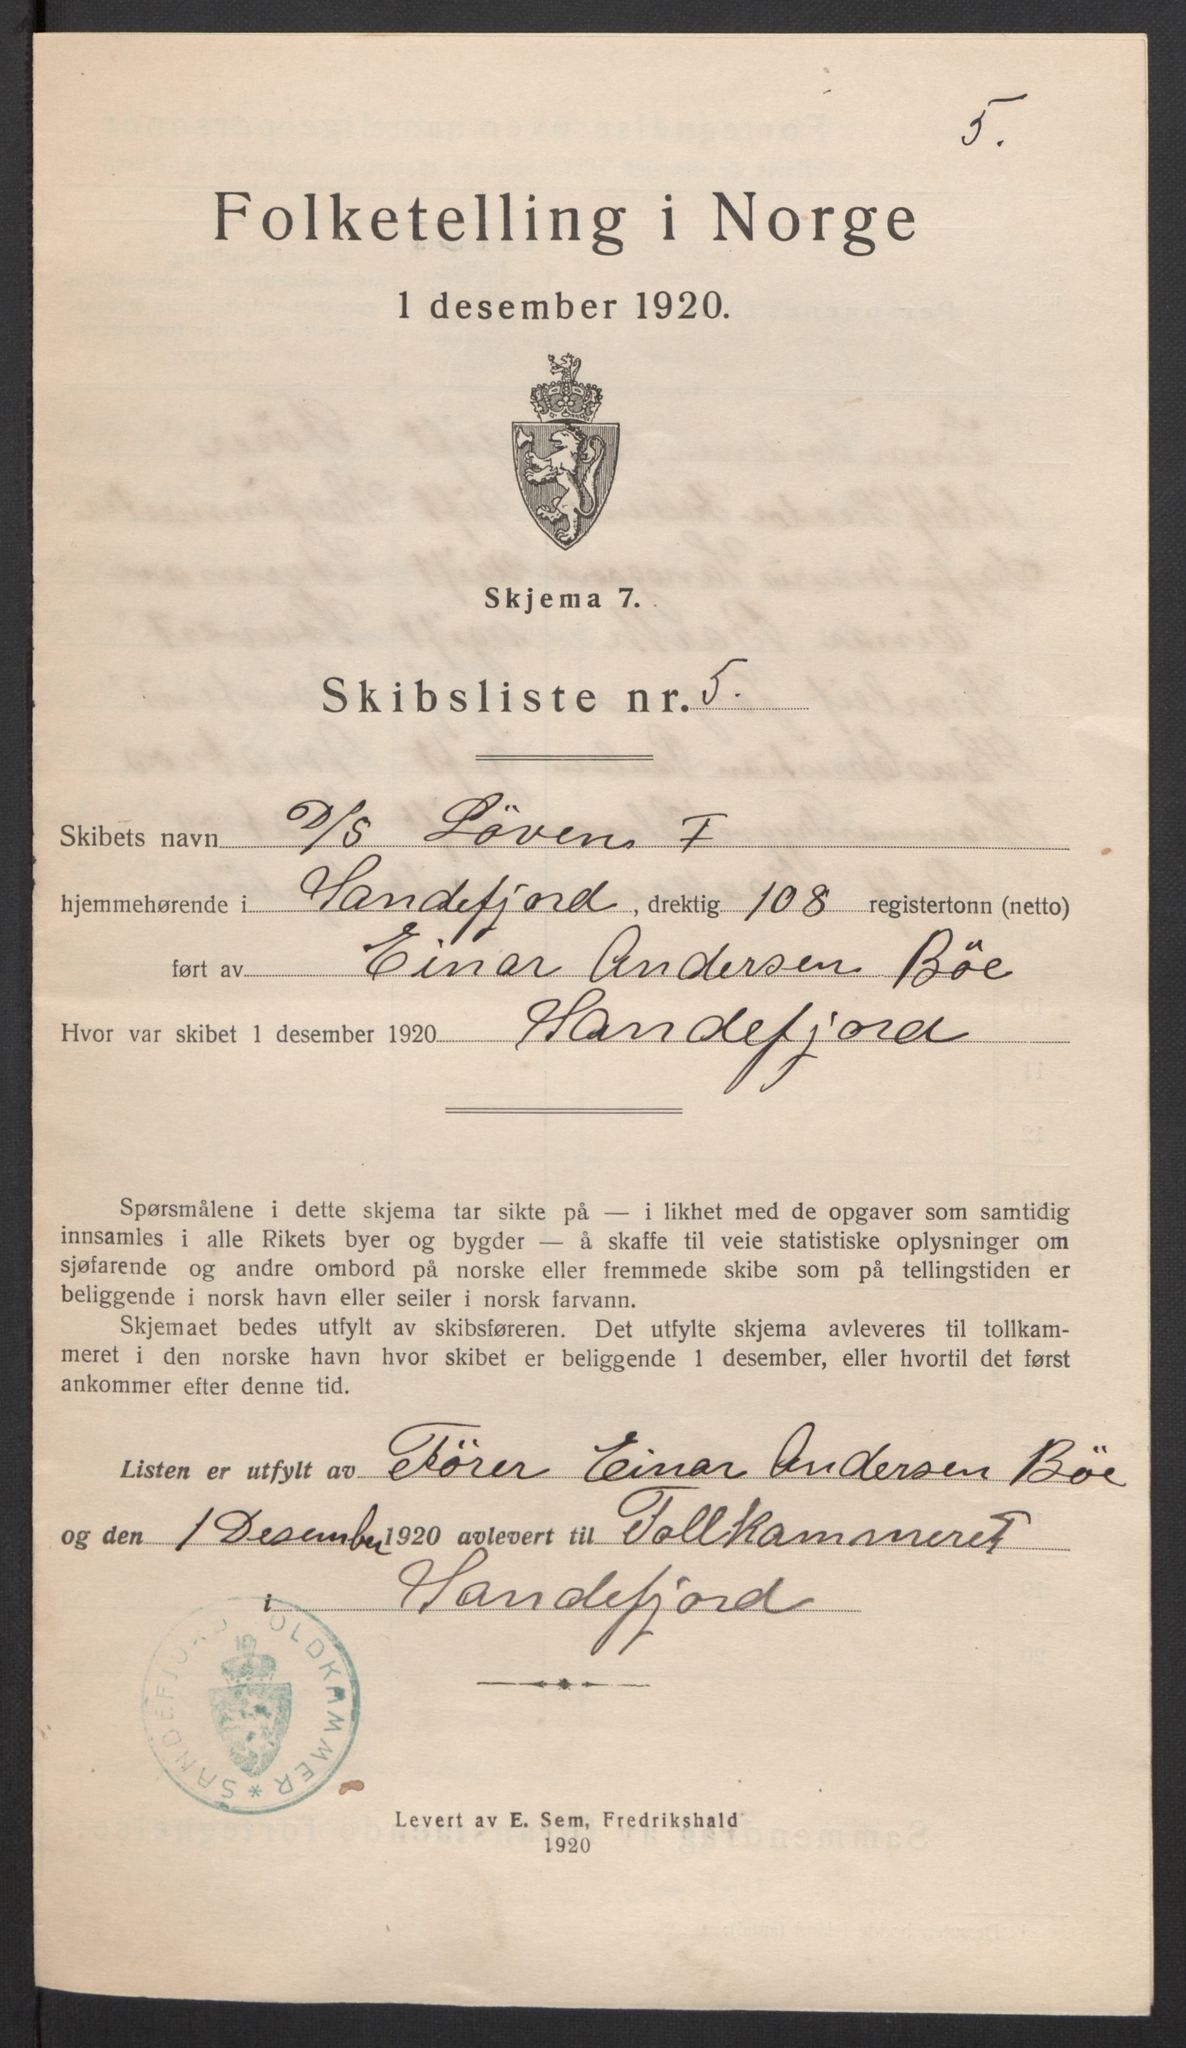 5.
Folketelling i Norge
1 desember 1920.
Skjema 7.
Skibsliste nr. 5.
Skibets navn D/S Löven I
hjemmehørende i Sandefjord, drektig 108 registertonn (netto)
ført av Einar Andersen Böe
Hvor var skibet 1 desember 1920 Sandefjord
Spørsmålene i dette skjema tar sikte på — i likhet med de opgaver som samtidig
innsamles i alle Rikets byer og bygder — å skaffe til veie statistiske oplysninger om
sjøfarende og andre ombord på norske eller fremmede skibe som på tellingstiden er
beliggende i norsk havn eller seiler i norsk farvann.
Skjemaet bedes utfylt av skibsføreren. Det utfylte skjema avleveres til tollkam-
meret i den norske havn hvor skibet er beliggende 1 desember, eller hvortil det først
ankommer efter denne tid.
Listen er utfylt av Förer Einar Andersen Böe
og den 1 Desember 1920 avlevert til Tollkammeret
i Sandefjord
SANDEFJORD TOLDKAMMER *
Levert av E. Sem, Fredrikshald
1920